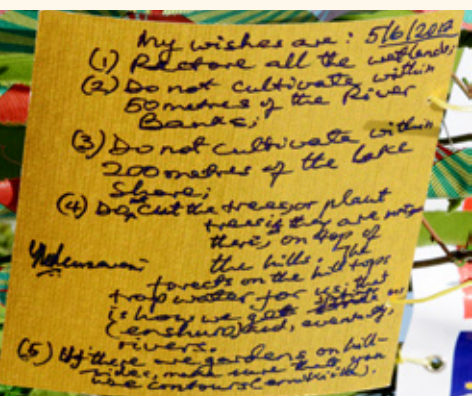 My wishes are: 5/6/2012
(1) Restore all the wetlands;
(2) Do not cultivate within
50 metres of the River
Banks;
(3) Do not cultivate within
200 metres of the Lake
Shore;
(4) Do not cut the trees or plant
trees if they are not
there, on top of
the hills. The
forests on the hill tops
trap water for us; that
is how we get
(enshuro) and, eventually,
rivers.
(5) If there are gardens on hill-
sides, make sure that you
use contours